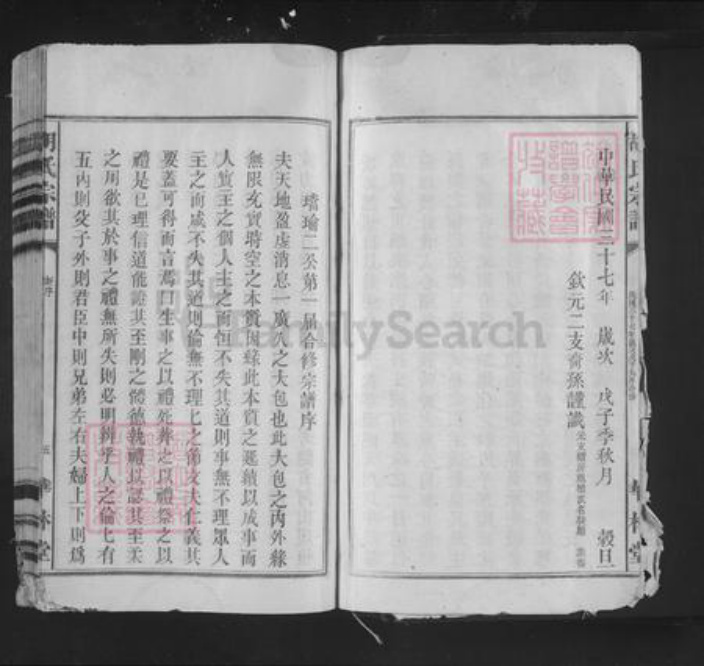 中華民國三十七年 歲次 戊子季秋月 穀旦
欽元二支裔孫謹識
瑨瑜二公第一屆合修宗譜序
夫天地盈虛消息一廣大之大包也此大包之內外緣
無限充實時空之本質因緣此本質之延續以成事而
人實主之個人主之而恒不失其道則事無不理眾人
主之而咸不失其道則倫無不理七之節文夫仁義其
要蓋可得而言焉曰生事之以禮死葬之以禮祭之以
禮是已理信道能證其至剛之體德執禮以證其至柔
之用欲其於事之禮無所失則必明辨乎人之倫七有
五內則父子外則君臣中則兄弟左右夫婦上下則為
胡氏宗譜
五
林堂
FamilySearch